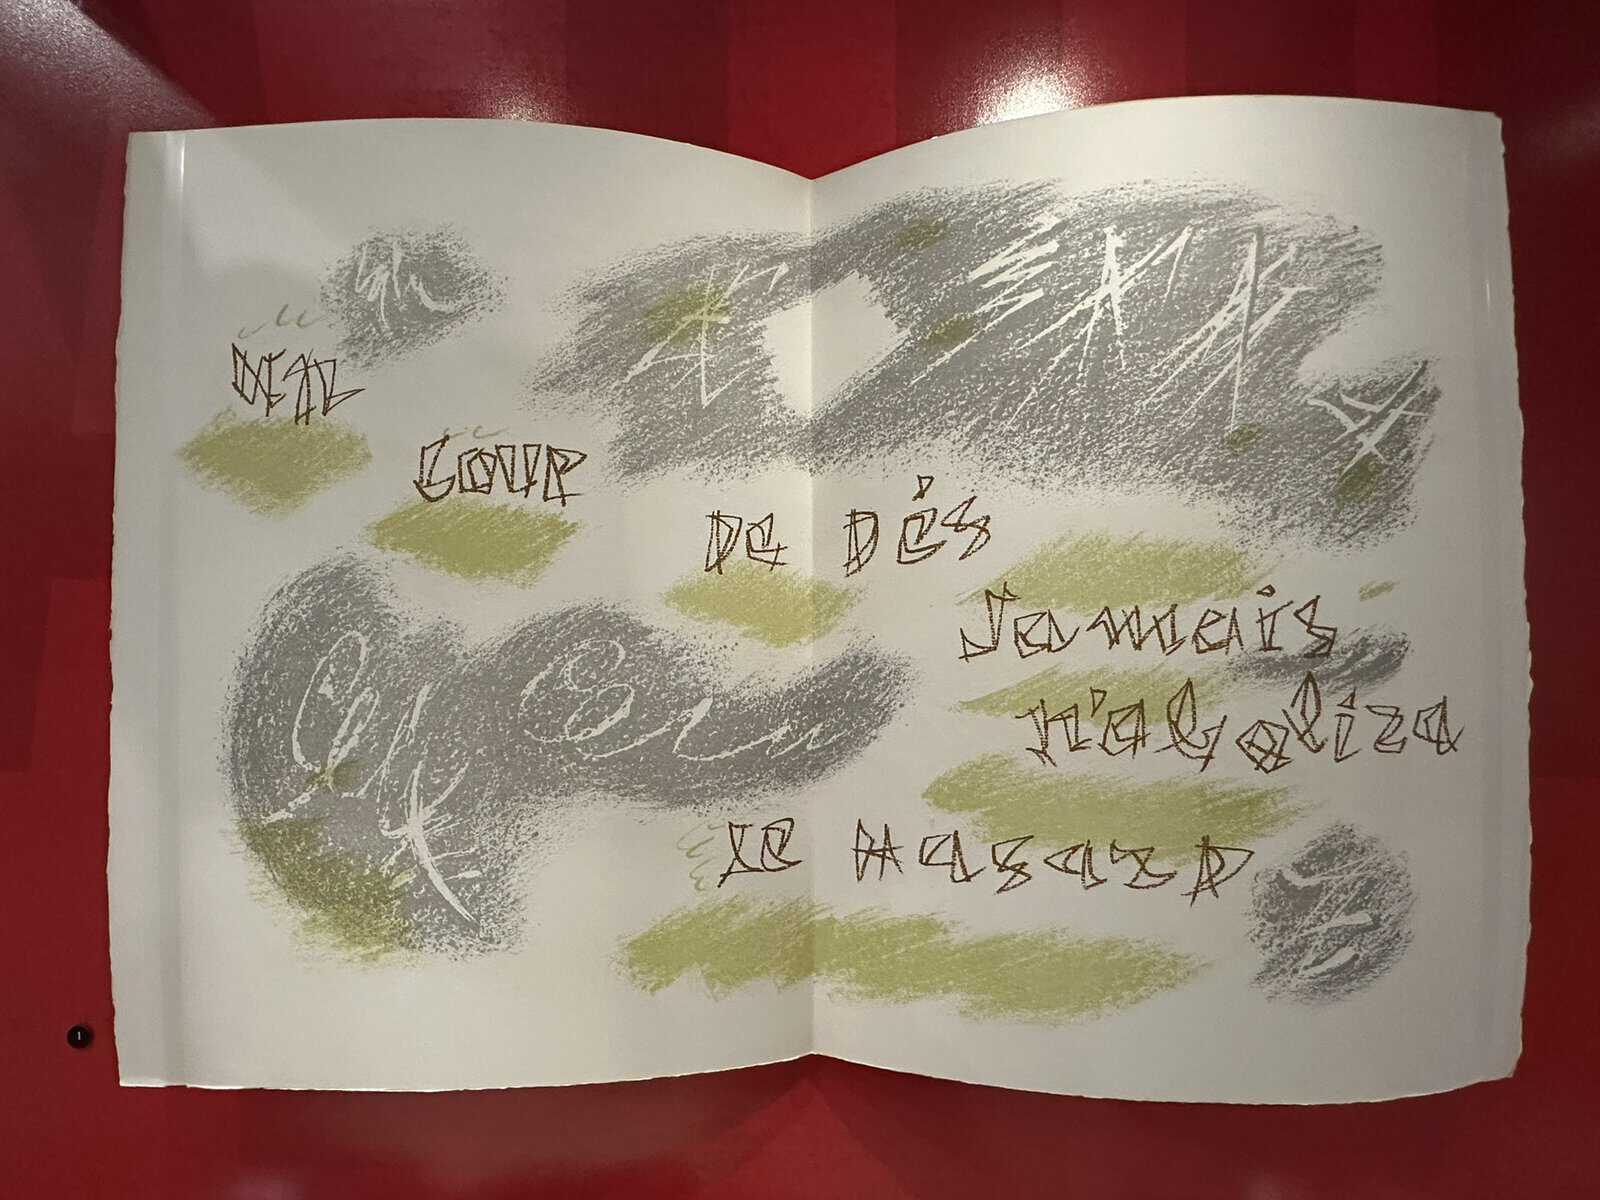 COUP
De Dés
Jamais
n'abolira
le Hasard
1